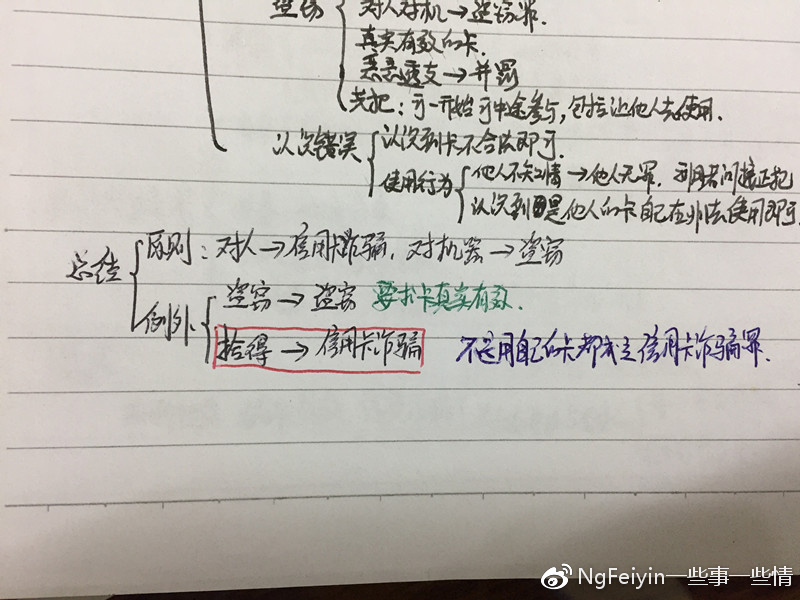 盗窃 对人对机→盗窃罪.
真实有效的卡.
恶意透支→并罚
共犯：可一开始可中途参与，包括让他人去使用.
认识错误 认识到卡不合法即可.
使用行为 他人不知情→他人无罪. 利用者间接正犯
认识到是他人的卡自己在非法使用即可.
总结 原则：对人→信用卡诈骗. 对机器→盗窃
例外. 盗窃→盗窃 要求卡真实有效.
拾得→信用卡诈骗 不是用自己的卡都成立信用卡诈骗罪.
NgFeiyin一些事一些情